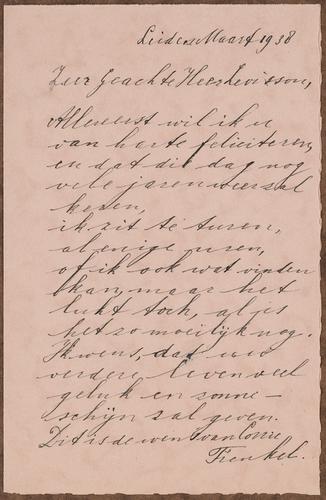 Leiden Maart 1938
Zeer Geachte Heer Levisson,
Allereerst wil ik u
van harte feliciteren,
en dat die dag nog
vele jaren weer zal
keren,
ik zit te turen,
al enige uren,
of ik ook wat vinden
kan, maar het
lukt toch, al is
het zo moeilijk nog.
Ik wens, dat uw
verdere leven veel
geluk en zonne-
schijn zal geven.
Dit is de wens van Corrie
Frenkel.